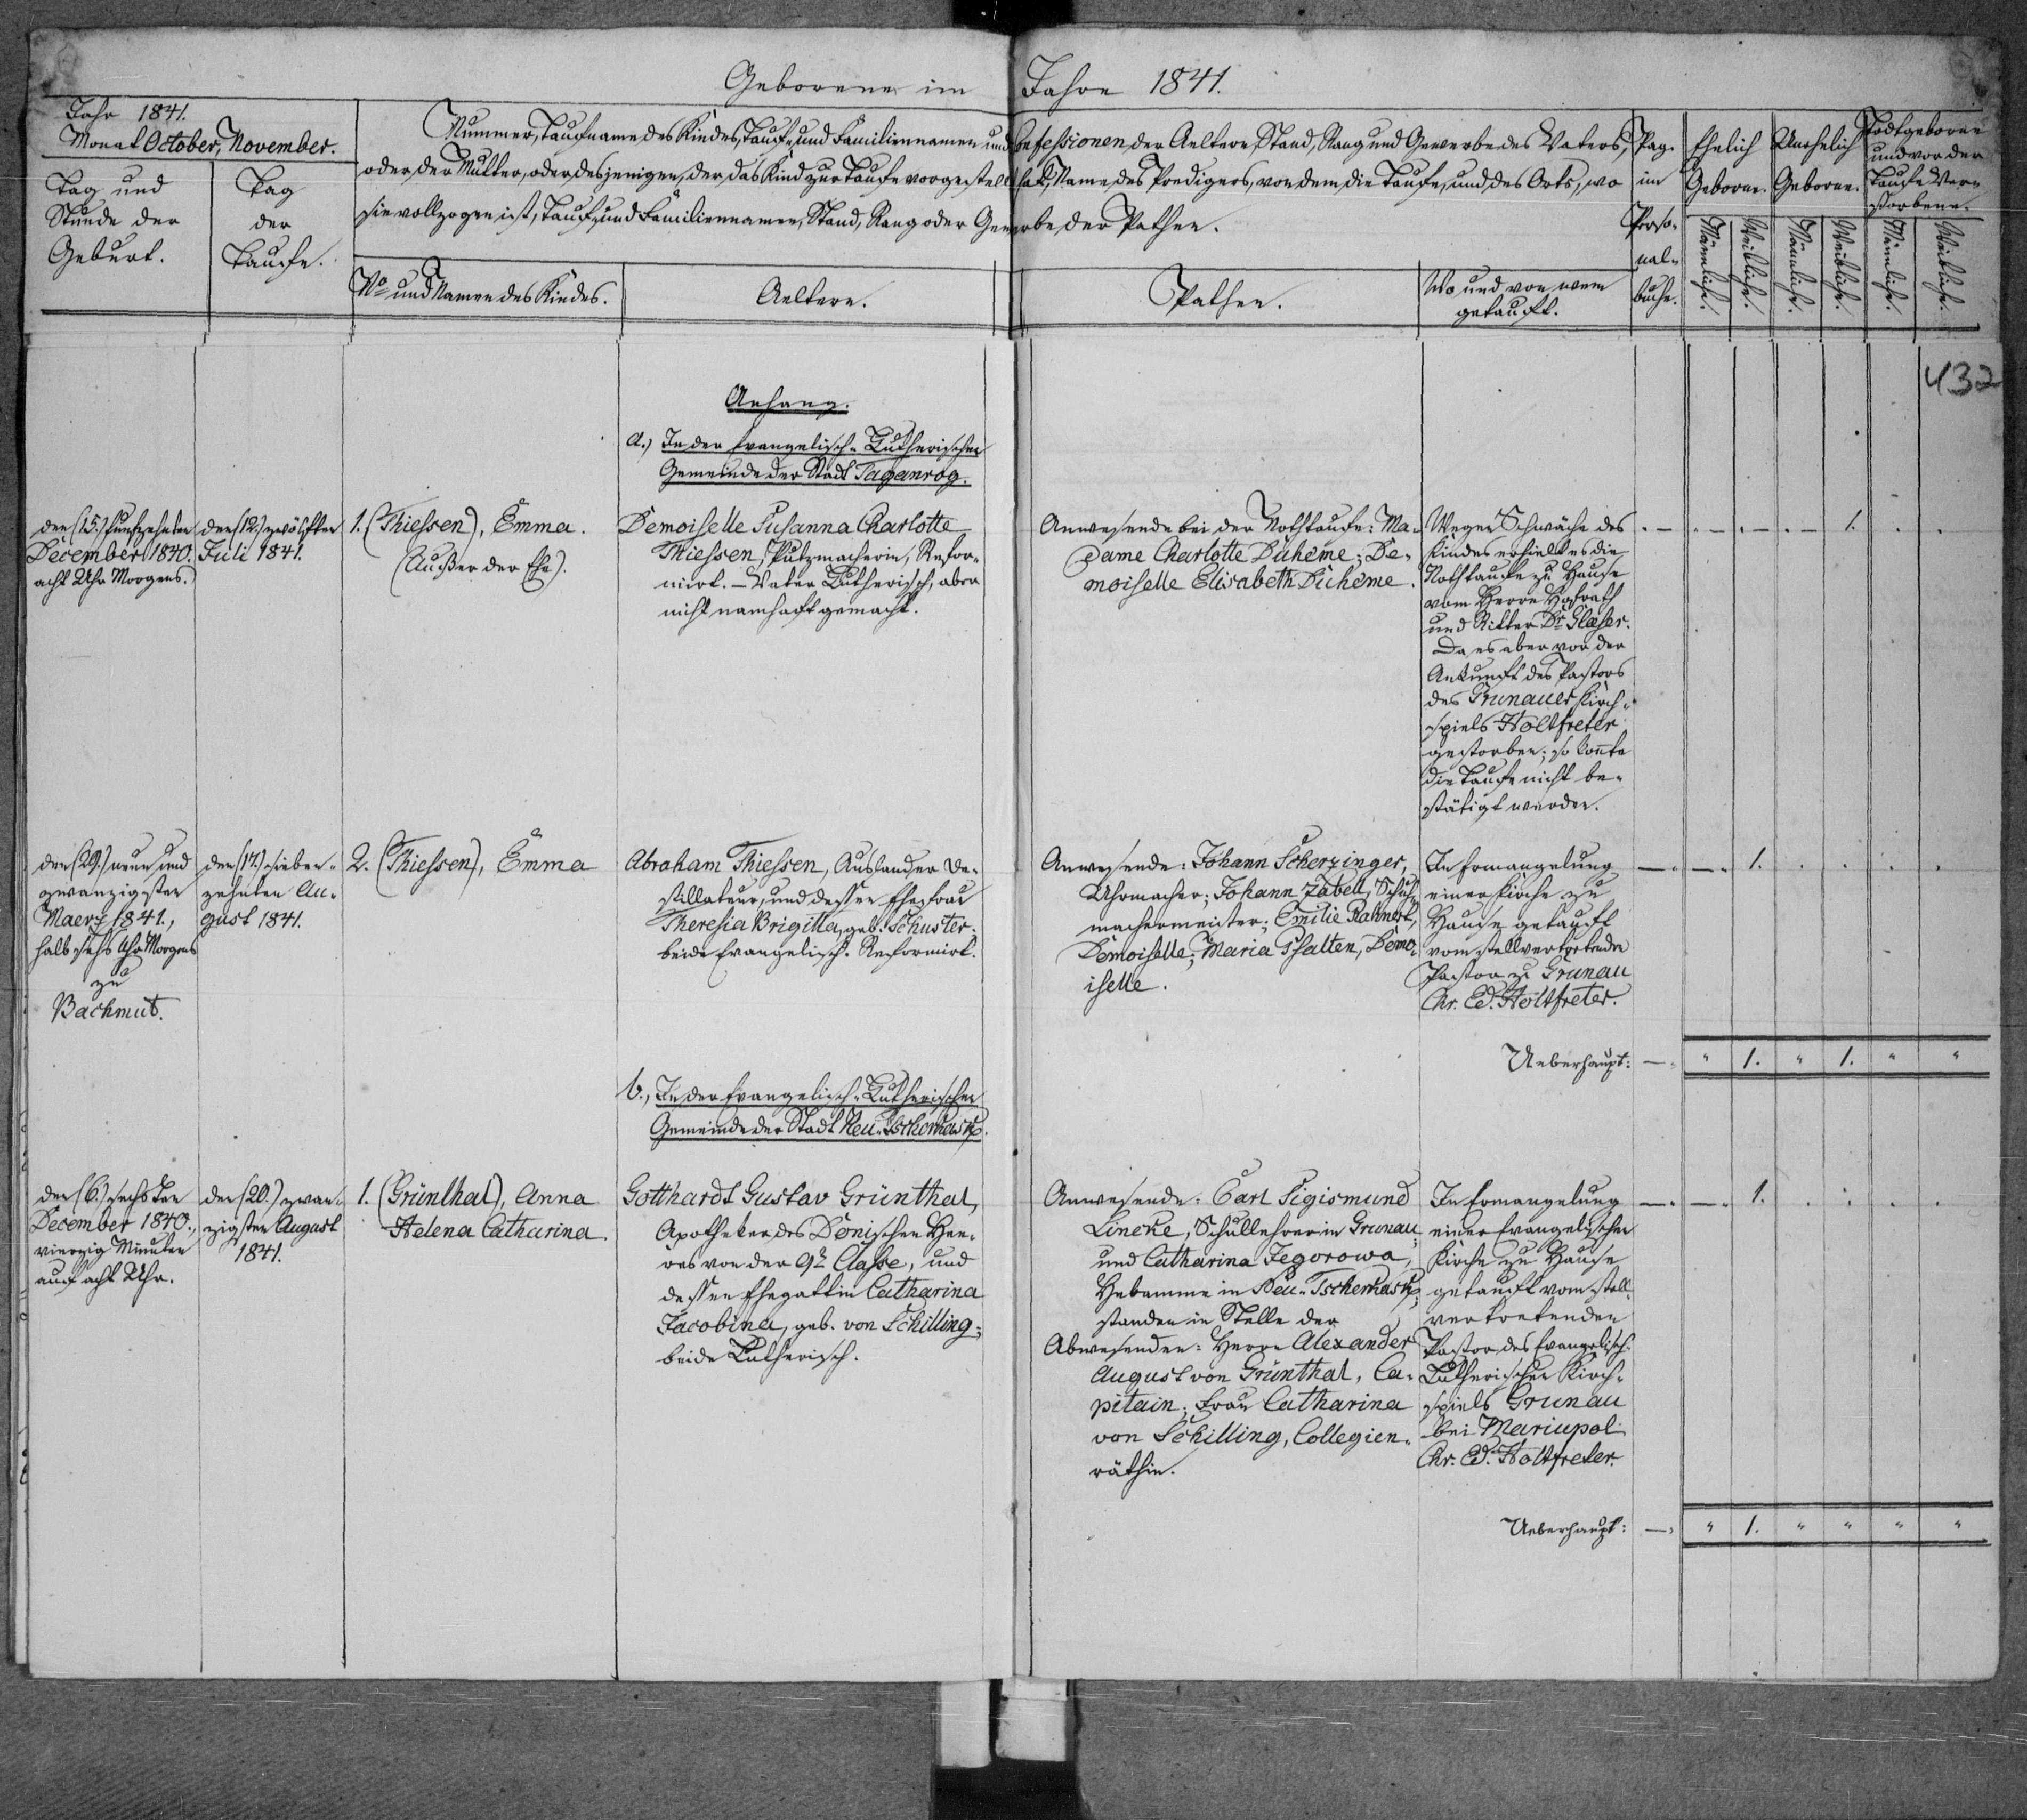 Geborene im Jahre 1841.
Jahr 1841.
Monat October, November.
Tag und
Stunde der
Geburt.
Tag
der
Taufe.
Nummer, Taufname des Kindes, Tauf- und Familiennamen und Confessionen der Aeltern, Stand, Rang und Gewerbe des Vaters,
oder der Mutter, oder desjenigen, der das Kind zur Taufe vorgestellt hat, Name des Predigers, von dem die Taufe, und des Orts, wo
sie vollzogen ist, Tauf- und Familiennamen, Stand, Rang oder Gewerbe der Pathen.
No und Namen des Kindes.
Aeltern.
Pathen.
Wo und von wem
getauft.
Pag.
im
Perso-
nal-
buche.
Ehelich
Geborne.
Unehelich
Geborne.
Todtgeborne
und vor der
Taufe Ver-
storbene.
Männliche.
Weibliche.
Männliche.
Weibliche.
Männliche.
Weibliche.
432
Anhang.
a.) In der Evangelisch-Lutherischen
Gemeinde der Stadt Taganrog.
den (15.) funfzehnten
December 1840.
acht Uhr Morgens.
den (12.) zwölften
Juli 1841.
1. (Thiessen), Emma.
(Außer der Ehe).
Demoiselle Susanna Charlotte
Thiessen, Putzmacherin, Refor-
mirt. — Vater Lutherisch, aber
nicht namhaft gemacht.
Anwesende bei der Nothtaufe: Ma-
dame Charlotte Duheme; De-
moiselle Elisabeth Duheme.
Wegen Schwäche des
Kindes erhielt es die
Nothtaufe zu Hause
vom Herrn Hofrath
und Ritter Dr Glaeser.
Da es aber vor der
Ankunft des Pastors
des Grunauer Kirch-
spiels Holtfreter
gestorben; so konnte
die Taufe nicht be-
stätigt werden.
— . — . — . — 1. . .
den (29.) neun und
zwanzigsten
Maerz 1841.,
halb sechs Uhr Morgens
zu
Bachmut.
den (17.) sieben-
zehnten Au-
gust 1841.
2. (Thiessen), Emma
Abraham Thiessen, Ausländer De-
stillateur, und dessen Ehefrau
Theresia Brigitta, geb. Schuster;
beide Evangelisch-Reformirt.
Anwesende: Johann Scherzinger,
Uhrmacher; Johann Zabell, Schuh-
machermeister; Emilie Rahnert,
Demoiselle; Maria Psalten, Demo-
iselle.
In Ermangelung
einer Kirche zu
Hause getauft
vom stellvertretenden
Pastor zu Grunau
Chr. Ed. Holtfreter.
— — 1. . . . .
Ueberhaupt: — " 1. " 1. " "
b.) In der Evangelisch-Lutherischen
Gemeinde der Stadt Neu-Tscherkask.
den (6.) sechsten
December 1840.,
vierzig Minuten
auf acht Uhr.
den (20.) zwan-
zigsten August
1841.
1. (Grünthal), Anna
Helena Catharina.
Gotthardt Gustav Grünthal,
Apotheker des Donischen Hee-
res von der 9n Classe, und
dessen Ehegattin Catharina
Jacobina, geb. von Schilling;
beide Lutherisch.
Anwesende: Carl Sigismund
Lincke, Schullehrer in Grunau;
und Catharina Jegorowa,
Hebamme in Neu-Tscherkask;
standen in Stelle der
Abwesenden: Herrn Alexander
August von Grünthal, Ca-
pitain; Frau Catharina
von Schilling, Collegien-
räthin.
In Ermangelung
einer Evangelischen
Kirche zu Hause
getauft vom stell-
vertretenden
Pastor des Evangelisch-
Lutherischen Kirch-
spiels Grunau
bei Mariupol
Chr. Ed. Holtfreter.
— — 1. . . . .
Ueberhaupt: — " 1. " " " "